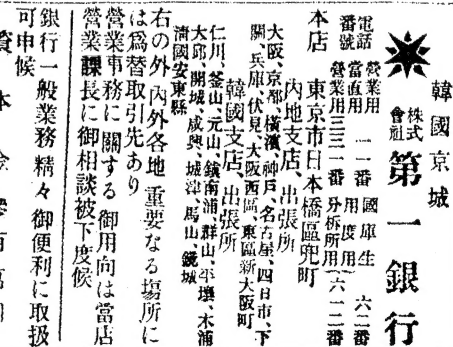 韓國京城
株式會社 第一銀行
電話番號 營業用 一一番 國庫生 六二番
當直用 二一番 用度用
營業用 三三一番 分析所用 六一二番
本店 東京市日本橋區兜町
內地支店、出張所
大阪、京都、橫濱、神戶、名古屋、四日市、下
關、兵庫、伏見、大阪西區、東區新大阪町
韓國支店、出張所
仁川、釜山、元山、鎭南浦、群山、平壤、木浦
大邱、開城、咸興、城津、馬山、鏡城
淸國安東縣
右の外內外各地重要なる場所に
は爲替取引先あり
營業事務に關する御用向は當店
營業課長に御相談被下度候
銀行一般業務精々御便利に取扱
可申候
資本金